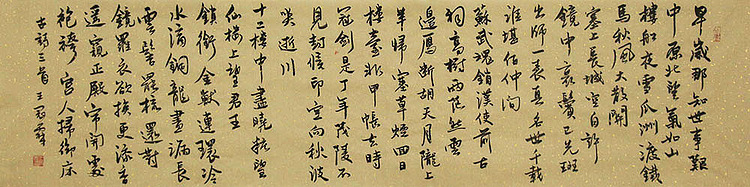 早歲那知世事艱
中原北望氣如山
樓船夜雪瓜洲渡鐵
馬秋風大散關
塞上長城空自許
鏡中衰鬢已先斑
出師一表真名世千載
誰堪伯仲間
蘇武魂銷漢使前古
祠高樹兩茫然雲
邊雁斷胡天月隴上
羊歸塞草煙回日
樓臺非甲帳去時
冠劍是丁年茂陵不
見封侯印空向秋波
哭逝川
十二樓中盡曉妝望
仙樓上望君王
鎖銜金獸連環冷
水滴銅龍晝漏長
雲髻罷梳還對
鏡羅衣欲換更添香
遙窺正殿帘開處
袍袴宮人掃御床
古詩三首 王